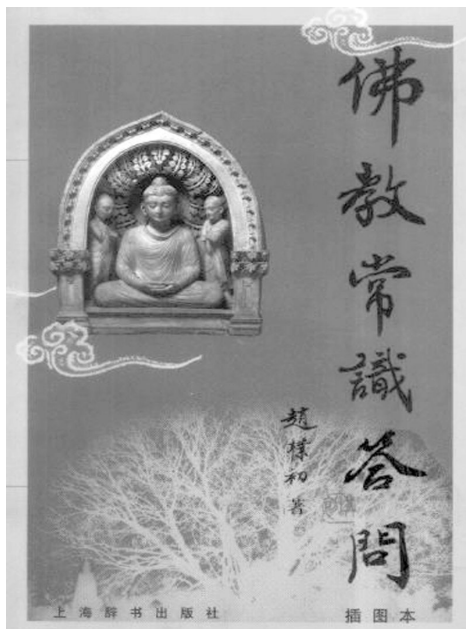 佛教常識答問
趙樸初著
上海辞书出版社
插图本